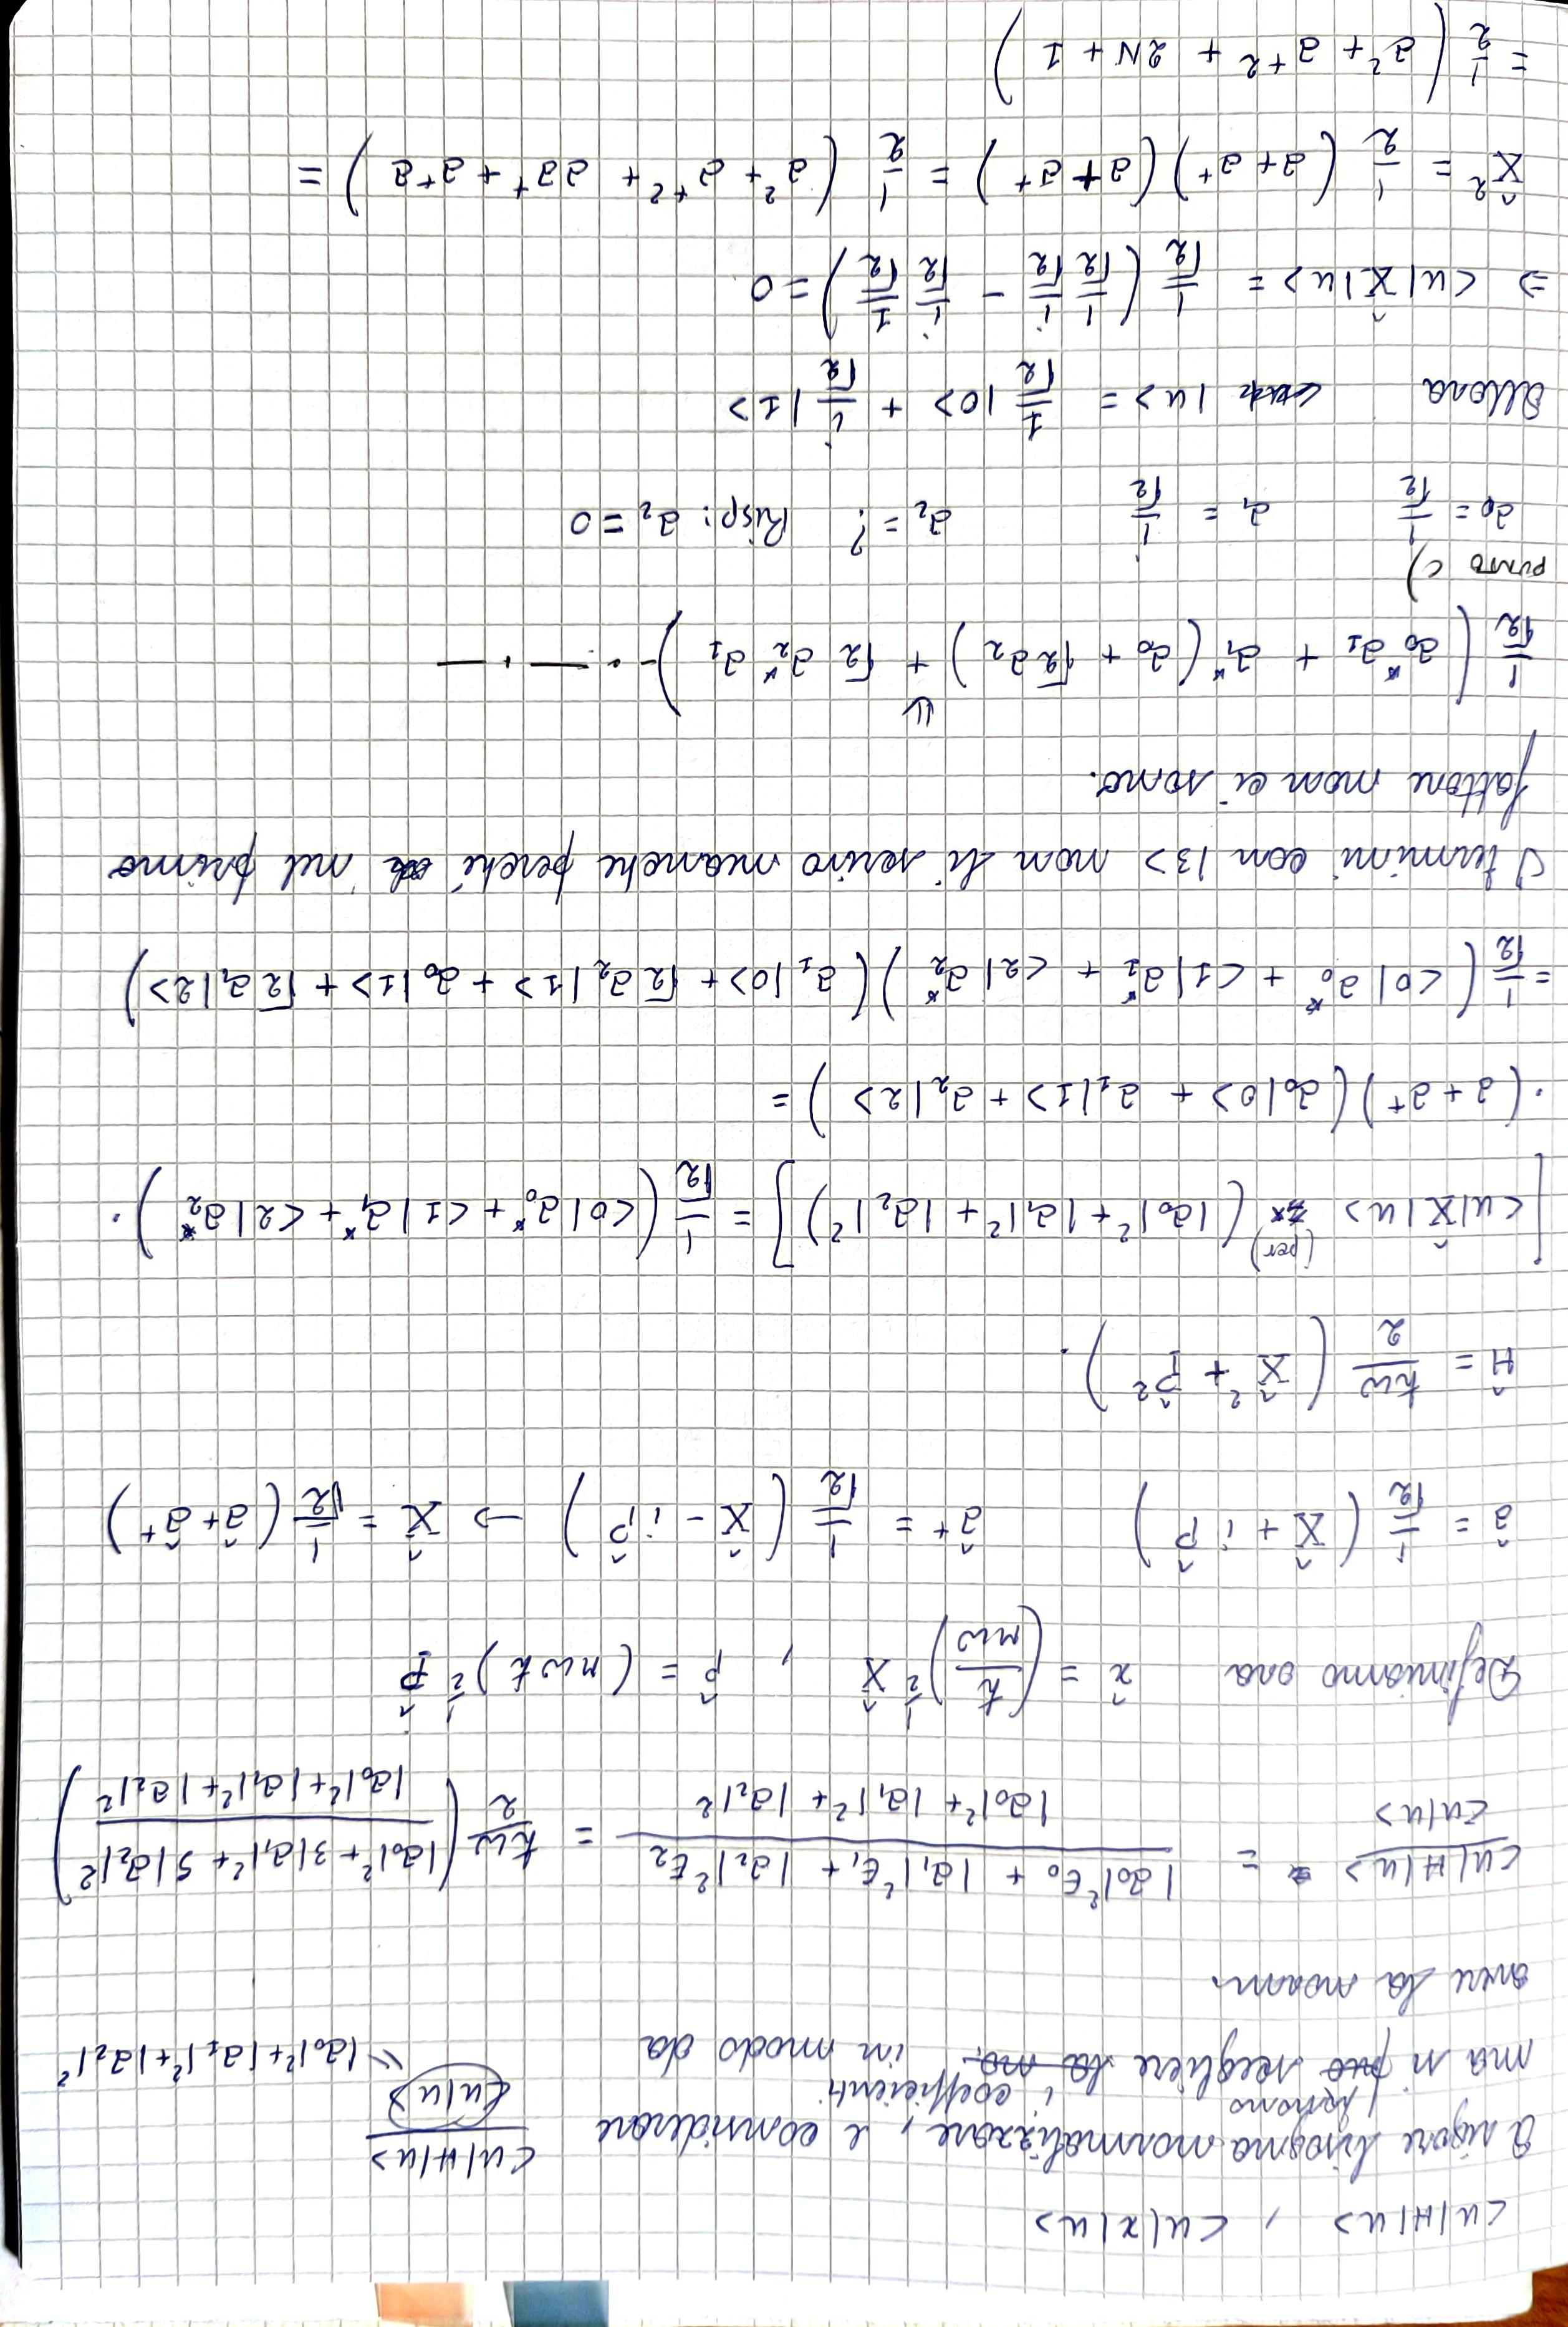 <u|H|u> , <u|x|u>
A rigore bisogna normalizzare, e considerare <u|H|u> / <u|u>
" |a₀|² + |a₁|² + |a₂|²
possono i coefficienti
ma si può scegliere la no. in modo da
avere la norm.
<u|H|u> / <u|u> = (|a₀|² E₀ + |a₁|² E₁ + |a₂|² E₂) / (|a₀|² + |a₁|² + |a₂|²) = ħω/2 ( (|a₀|² + 3|a₁|² + 5|a₂|²) / (|a₀|² + |a₁|² + |a₂|²) )
Definiamo ora x̂ = (ħ/mω)^½ X̂ , p̂ = (mωħ)^½ P̂
â = 1/√2 ( X̂ + i P̂ ) â⁺ = 1/√2 ( X̂ - i P̂ ) → X̂ = 1/√2 ( â + â⁺ )
Ĥ = ħω/2 ( X̂² + P̂² ).
[ <u|X̂|u> (per) ( |a₀|² + |a₁|² + |a₂|² ) ] = 1/√2 ( <0|a₀* + <1|a₁* + <2|a₂* ) ·
· (a + a⁺) ( a₀|0> + a₁|1> + a₂|2> ) =
= 1/√2 ( <0|a₀* + <1|a₁* + <2|a₂* ) ( a₁|0> + √2 a₂|1> + a₀|1> + √2 a₁|2> )
I termini con |3> non li scrivo neanche perché nel primo
fattore non ci sono.
⇓
1/√2 ( a₀* a₁ + a₁* ( a₀ + √2 a₂ ) + √2 a₂* a₁ ) - . — . —
PUNTO c)
a₀ = 1/√2 a₁ = i/√2 a₂ = ? Risp: a₂ = 0
Allora |u> = 1/√2 |0> + i/√2 |1>
⇒ <u|X̂|u> = 1/√2 ( 1/√2 i/√2 - i/√2 1/√2 ) = 0
X̂² = 1/2 ( a + a⁺ ) ( a + a⁺ ) = 1/2 ( a² + a⁺² + aa⁺ + a⁺a ) =
= 1/2 ( a² + a⁺² + 2N + 1 )